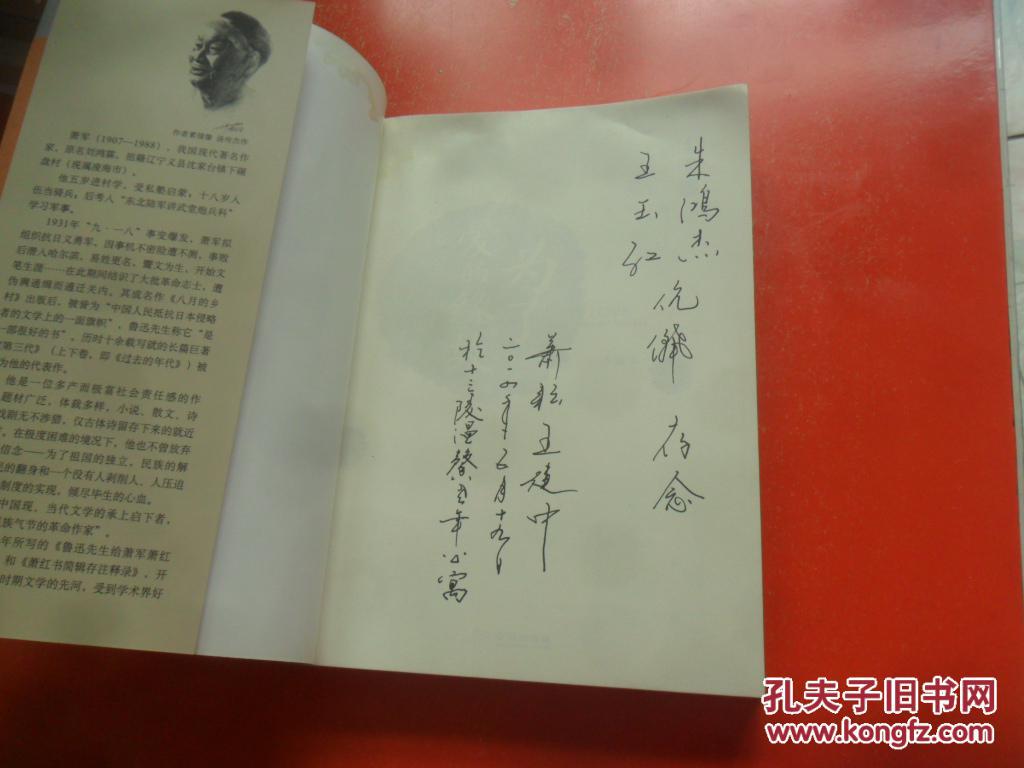 作者素描像 汤传杰作
萧军(1907—1988),我国现代著名作
家,原名刘鸿霖,祖籍辽宁义县沈家台镇下碾
盘村(现属凌海市)。
他五岁进村学,受私塾启蒙;十八岁入
伍当骑兵;后考入“东北陆军讲武堂炮兵科”
学习军事。
1931年“九·一八”事变爆发,萧军拟
组织抗日义勇军,因事机不密险遭不测,事败
后潜入哈尔滨,易姓更名,鬻文为生,开始文
笔生涯……在此期间结识了大批革命志士,遭
伪满通缉而通迁关内。其成名作《八月的乡
村》出版后,被誉为“中国人民抵抗日本侵略
者的文学上的一面旗帜”,鲁迅先生称它“是
一部很好的书”,历时十余载写就的长篇巨著
《第三代》(上下卷,即《过去的年代》)被
为他的代表作。
他是一位多产而极富社会责任感的作
题材广泛,体裁多样,小说、散文、诗
戏剧无不涉猎,仅古体诗留存下来的就近
在极度困难的境况下,他也不曾放弃
信念——为了祖国的独立,民族的解
民的翻身和一个没有人剥削人、人压迫
制度的实现,倾尽毕生的心血。
中国现、当代文学的承上启下者,
民族气节的革命作家”。
年所写的《鲁迅先生给萧军萧红
和《萧红书简辑存注释录》,开
时期文学的先河,受到学术界好
朱鸿杰
王玉红 伉俪 存念
萧耘 王建中
二〇一四年十二月十九日
于十三陵温馨老年公寓
孔夫子旧书网
www.kongfz.com